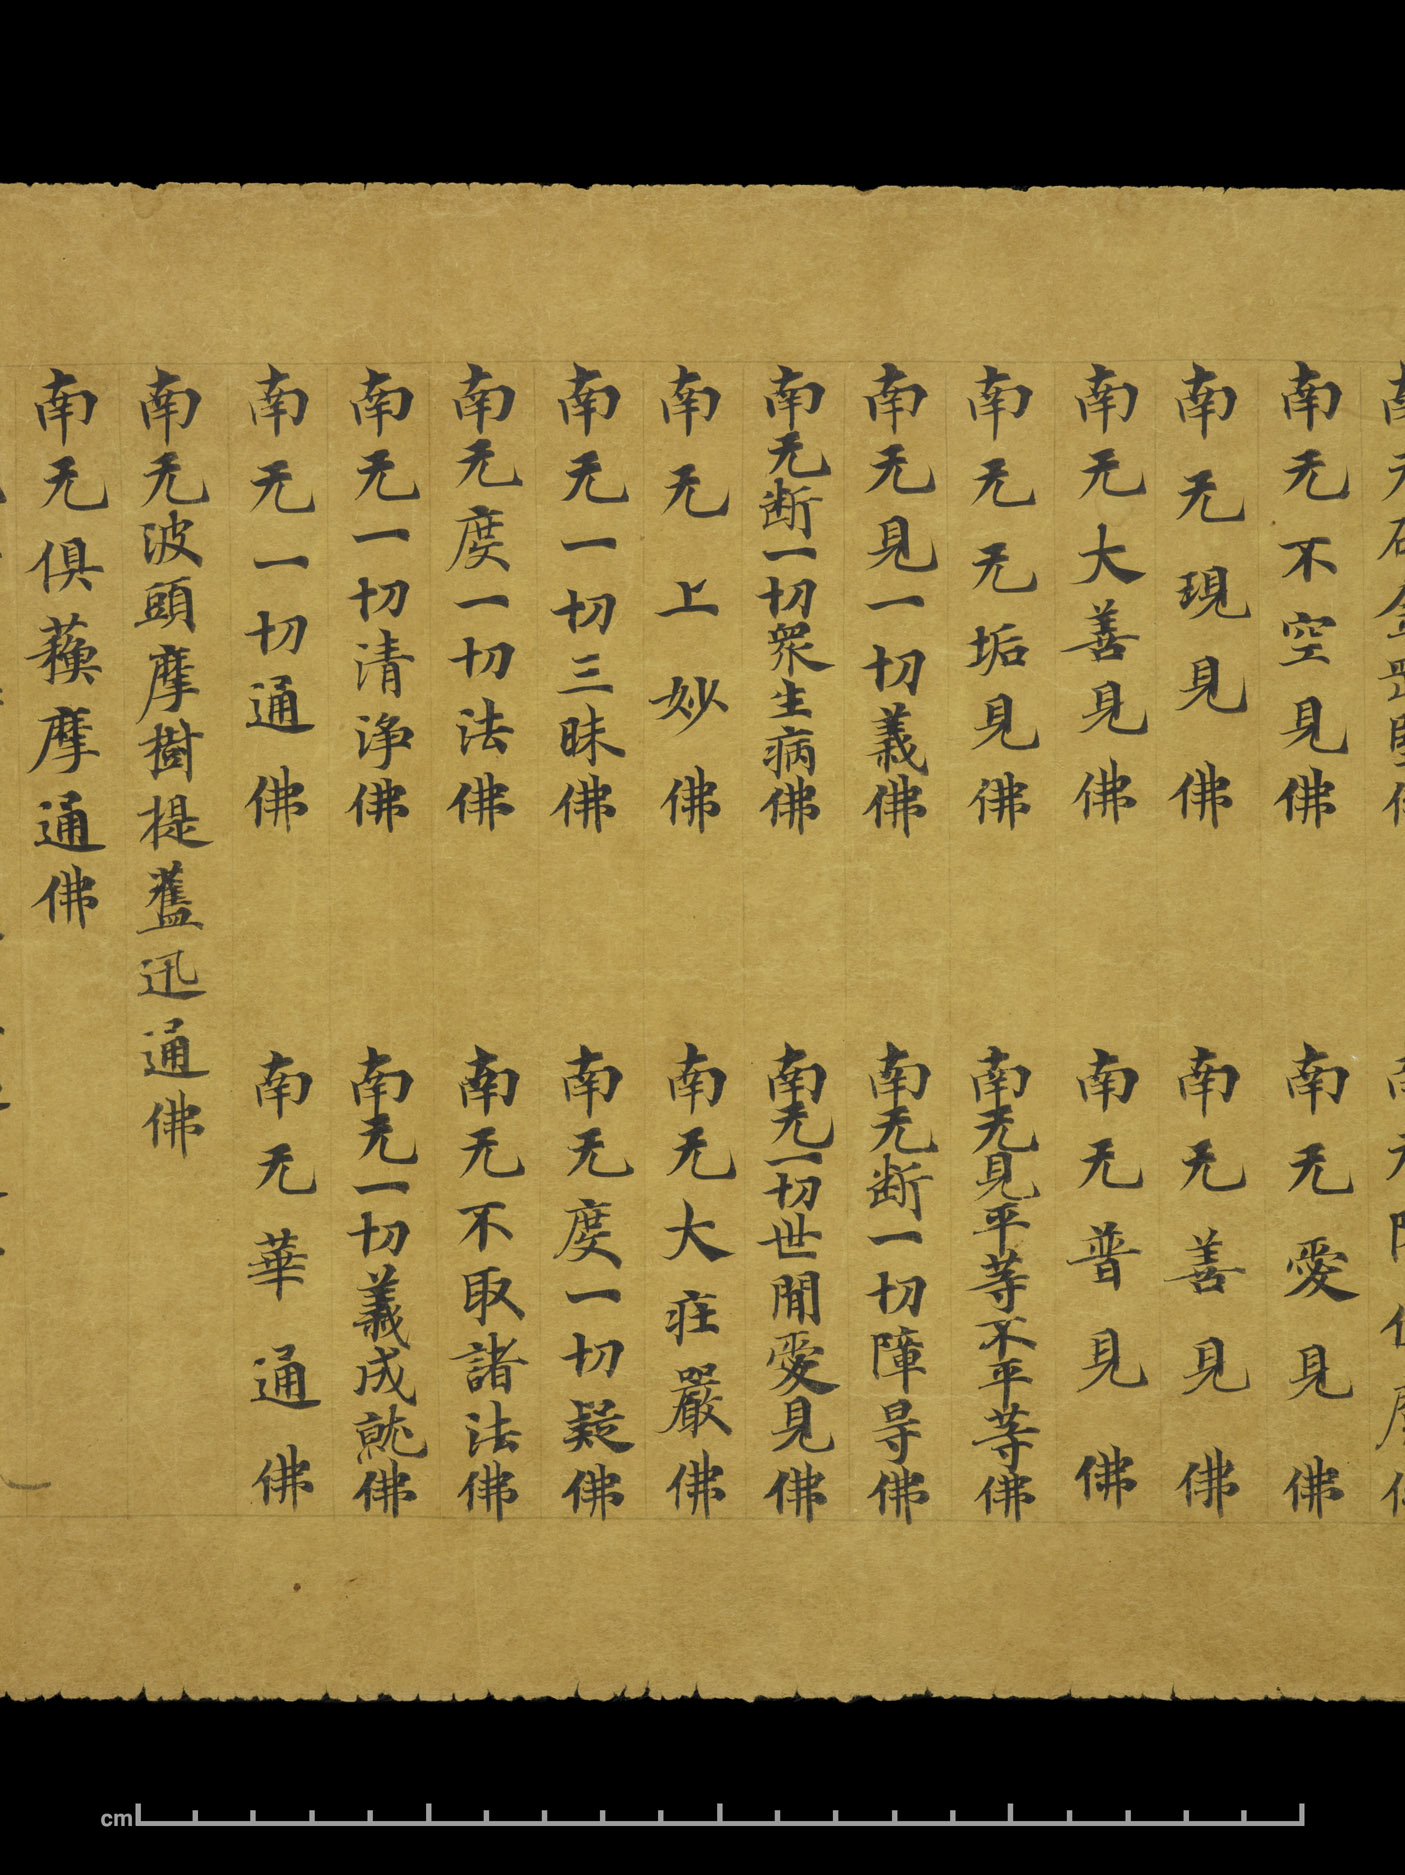 南无不空見佛 南无愛見佛
南无現見佛 南无善見佛
南无大善見佛 南无普見佛
南无无垢見佛 南无見平等不平等佛
南无見一切義佛 南无断一切障㝵佛
南无断一切眾生病佛 南无一切世閒愛見佛
南无上妙佛 南无大疰嚴佛
南无一切三昧佛 南无度一切疑佛
南无度一切法佛 南无不取諸法佛
南无一切清淨佛 南无一切義成就佛
南无一切通佛 南无華通佛
南无波頭摩樹提迅通佛
南无俱蘓摩通佛
cm